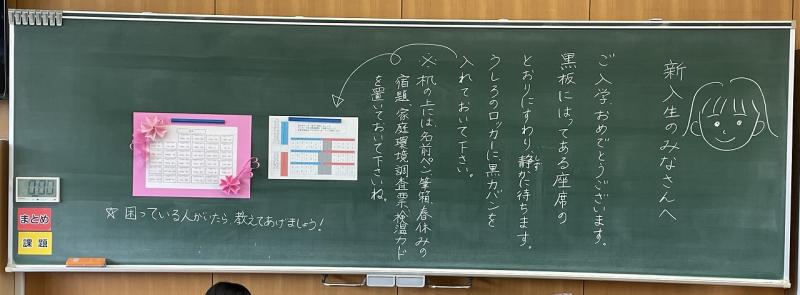 新入生のみなさんへ
ご入学おめでとうございます。
黒板にはってある座席の
とおりにすわり静かに待ちます。
しず
うしろのロッカーに黒カバンを
入れておいて下さい。
※机の上には、名前ペン、筆箱、春休みの
宿題、家庭環境調査票、検温カード
を置いておいて下さいね。
☆困っている人がいたら、教えてあげましょう!
まとめ
課題